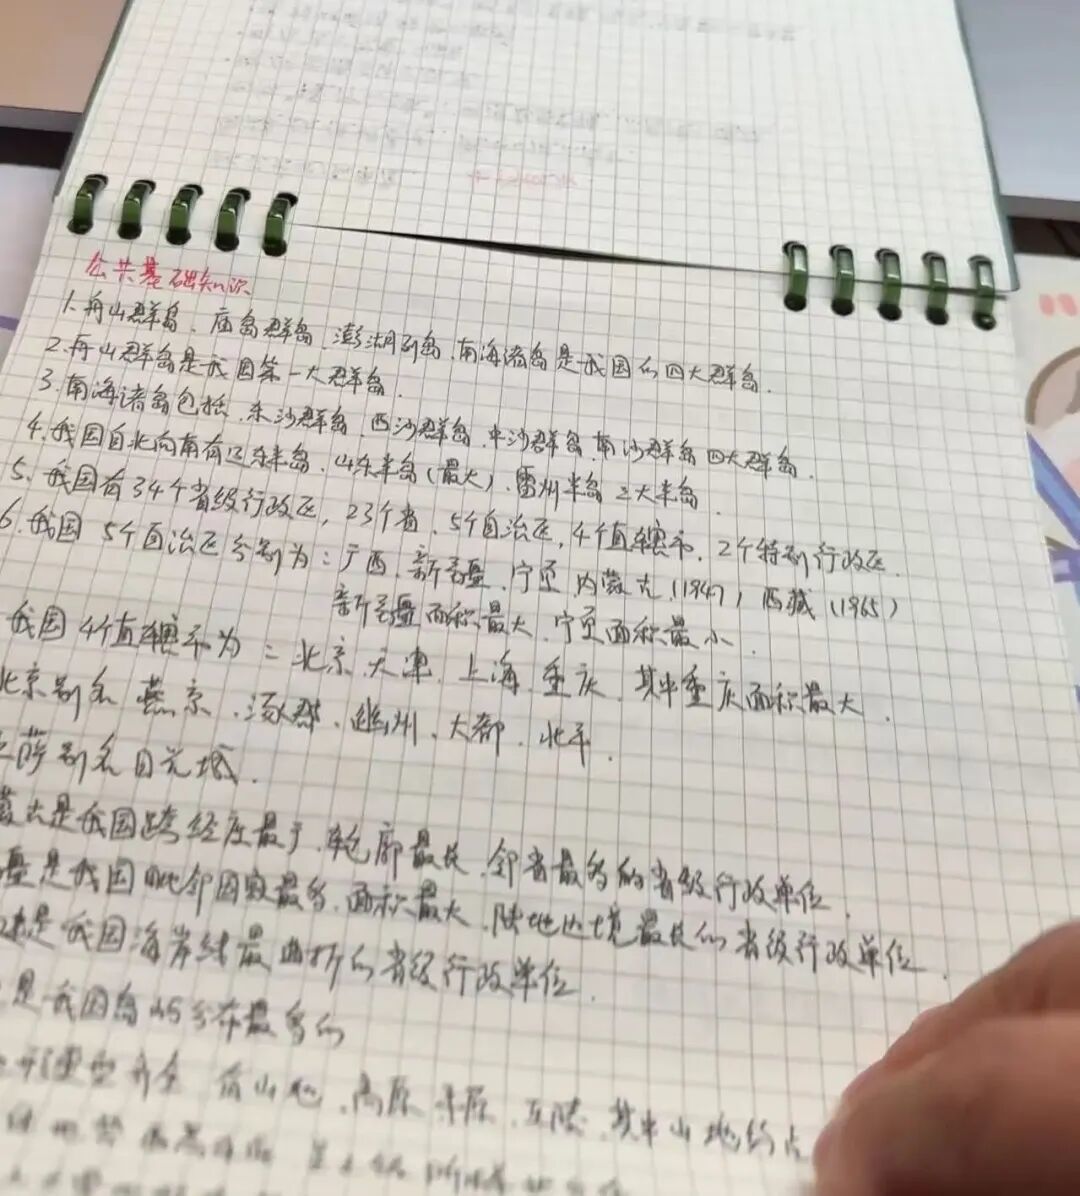 公共基础知识
1.舟山群岛、庙岛群岛、澎湖列岛、南海诸岛是我国的四大群岛.
2.舟山群岛是我国第一大群岛.
3.南海诸岛包括、东沙群岛、西沙群岛、中沙群岛、南沙群岛四大群岛.
4.我国自北向南有辽东半岛、山东半岛(最大)、雷州半岛三大半岛.
5.我国有34个省级行政区,23个省、5个自治区,4个直辖市、2个特别行政区.
6.我国5个自治区分别为:广西、新疆、宁夏、内蒙古(1947)西藏(1965)
新疆面积最大、宁夏面积最小.
我国4个直辖市为:北京、天津、上海、重庆、其中重庆面积最大.
北京别名 燕京、涿郡、幽州、大都、北平.
萨别名日光城.
蒙古是我国跨经度最广、轮廓最长、邻省最多的省级行政单位.
疆是我国毗邻国家最多、面积最大、陆地边境最长的省级行政单位.
是我国海岸线最曲折的省级行政单位.
是我国岛屿分布最多的
形类型齐全 有山地、高原、平原、丘陵、其中山地约占